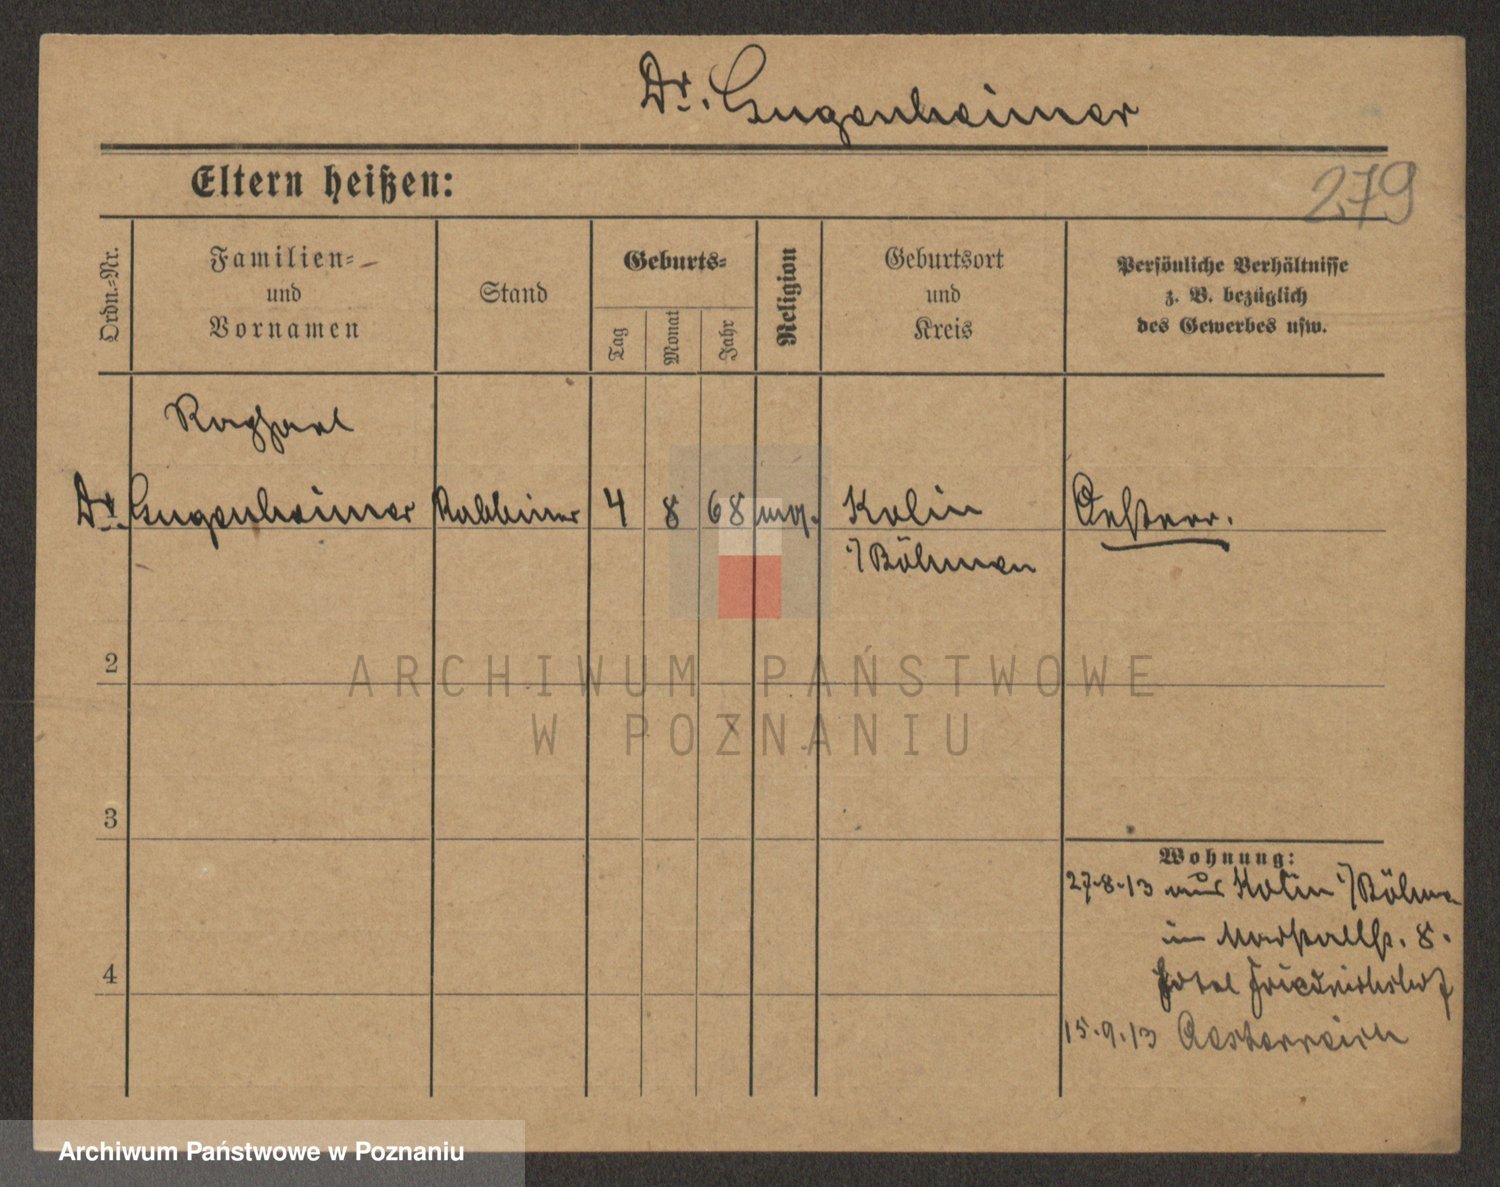 Dr. Gugenheimer
Eltern heißen:
279
Ordn.-Nr.
Familien-
und
Vornamen
Stand
Geburts-
Tag
Monat
Jahr
Religion
Geburtsort
und
Kreis
Persönliche Verhältnisse
z. B. bezüglich
des Gewerbes usw.
Raphael
Dr. Gugenheimer Rabbiner 4 8 68 mos. Kolin Oesterr.
i/Böhmen
2
3
4
Wohnung:
27.8.13 aus Kolin i/Böhmen
in 8.
Hotel
15.9.13 Oesterreich
ARCHIWUM PAŃSTWOWE
W POZNANIU
Archiwum Państwowe w Poznaniu